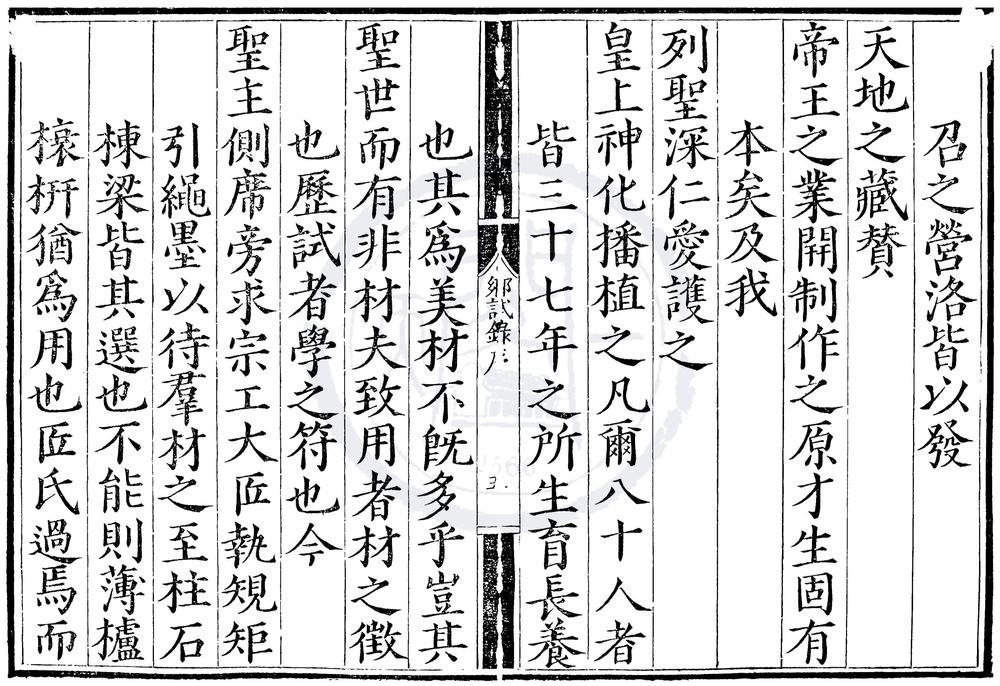 召之營洛皆以發
天地之藏賛
帝王之業開制作之原才生固有
本矣及我
列聖深仁愛護之
皇上神化播植之凡爾八十人者
皆三十七年之所生育長養
鄉試錄序
三
也其爲美材不既多乎豈其
聖世而有非材夫致用者材之徵
也歷試者學之符也今
聖主側席旁求宗工大匠執規矩
引繩墨以待羣材之至柱石
棟梁皆其選也不能則薄櫨
榱枅猶爲用也匠氏過焉而